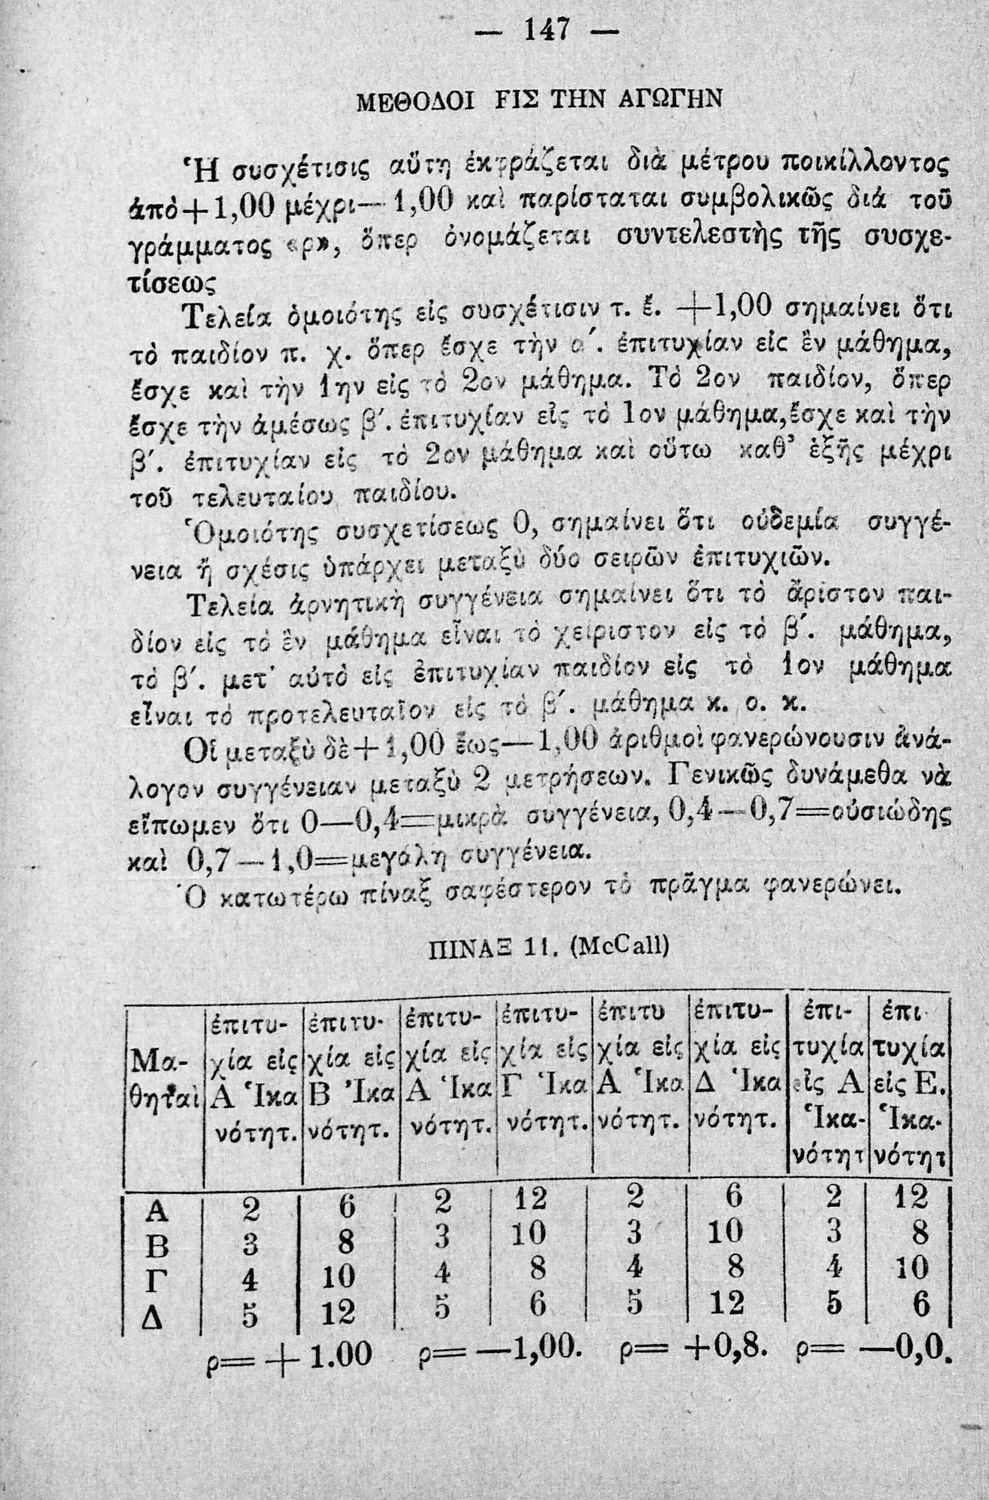 — 147 —
ΜΕΘΟΔΟΙ FΙΣ ΤΗΝ ΑΓΩΓΗΝ
Ἡ συσχέτισις αὕτη ἐκφράζεται διὰ μέτρου ποικίλλοντος
ἀπὸ+1,00 μέχρι—1,00 καὶ παρίσταται συμβολικῶς διὰ τοῦ
γράμματος «ρ», ὅπερ ὀνομάζεται συντελεστὴς τῆς συσχε-
τίσεως
Τελεία ὁμοιότης εἰς συσχέτισιν τ. ἔ. +1,00 σημαίνει ὅτι
τὸ παιδίον π. χ. ὅπερ ἔσχε τὴν α΄. ἐπιτυχίαν εἰς ἓν μάθημα,
ἔσχε καὶ τὴν 1ην εἰς τὸ 2ον μάθημα. Τὸ 2ον παιδίον, ὅπερ
ἔσχε τὴν ἀμέσως β΄. ἐπιτυχίαν εἰς τὸ 1ον μάθημα,ἔσχε καὶ τὴν
β΄. ἐπιτυχίαν εἰς τὸ 2ον μάθημα καὶ οὕτω καθ’ ἑξῆς μέχρι
τοῦ τελευταίου παιδίου.
Ὁμοιότης συσχετίσεως 0, σημαίνει ὅτι οὐδεμία συγγέ-
νεια ἢ σχέσις ὑπάρχει μεταξὺ δύο σειρῶν ἐπιτυχιῶν.
Τελεία ἀρνητικὴ συγγένεια σημαίνει ὅτι τὸ ἄριστον παι-
δίον εἰς τὸ ἓν μάθημα εἶναι τὸ χείριστον εἰς τὸ β΄. μάθημα,
τὸ β΄. μετ' αὐτὸ εἰς ἐπιτυχίαν παιδίον εἰς τὸ 1ον μάθημα
εἶναι τὸ προτελευταῖον εἰς τὸ β΄. μάθημα κ. ο. κ.
Οἱ μεταξὺ δὲ+1,00 ἕως—1,00 ἀριθμοὶ φανερώνουσιν ἀνά-
λογον συγγένειαν μεταξὺ 2 μετρήσεων. Γενικῶς δυνάμεθα νὰ
εἴπωμεν ὅτι 0—0,4=μικρὰ συγγένεια, 0,4—0,7=οὐσιώδης
καὶ 0,7—1,0=μεγάλη συγγένεια.
Ὁ κατωτέρω πίναξ σαφέστερον τὸ πρᾶγμα φανερώνει.
ΠΙΝΑΞ 11. (McCall)
ἐπιτυ- ἐπιτυ- ἐπιτυ- ἐπιτυ- ἐπιτυ ἐπιτυ- ἐπι- ἐπι
Μα- χία εἰς χία εἰς χία εἰς χία εἰς χία εἰς χία εἰς τυχία τυχία
θηταὶ Α Ἱκα Β Ἱκα Α Ἱκα Γ Ἱκα Α Ἱκα Δ Ἱκα εἰς Α εἰς Ε.
νότητ. νότητ. νότητ. νότητ. νότητ. νότητ. Ἱκα- Ἱκα-
νότητ νότητ
Α 2 6 2 12 2 6 2 12
Β 3 8 3 10 3 10 3 8
Γ 4 10 4 8 4 8 4 10
Δ 5 12 5 6 5 12 5 6
ρ=+1.00 ρ=—1,00. ρ= +0,8. ρ= —0,0.